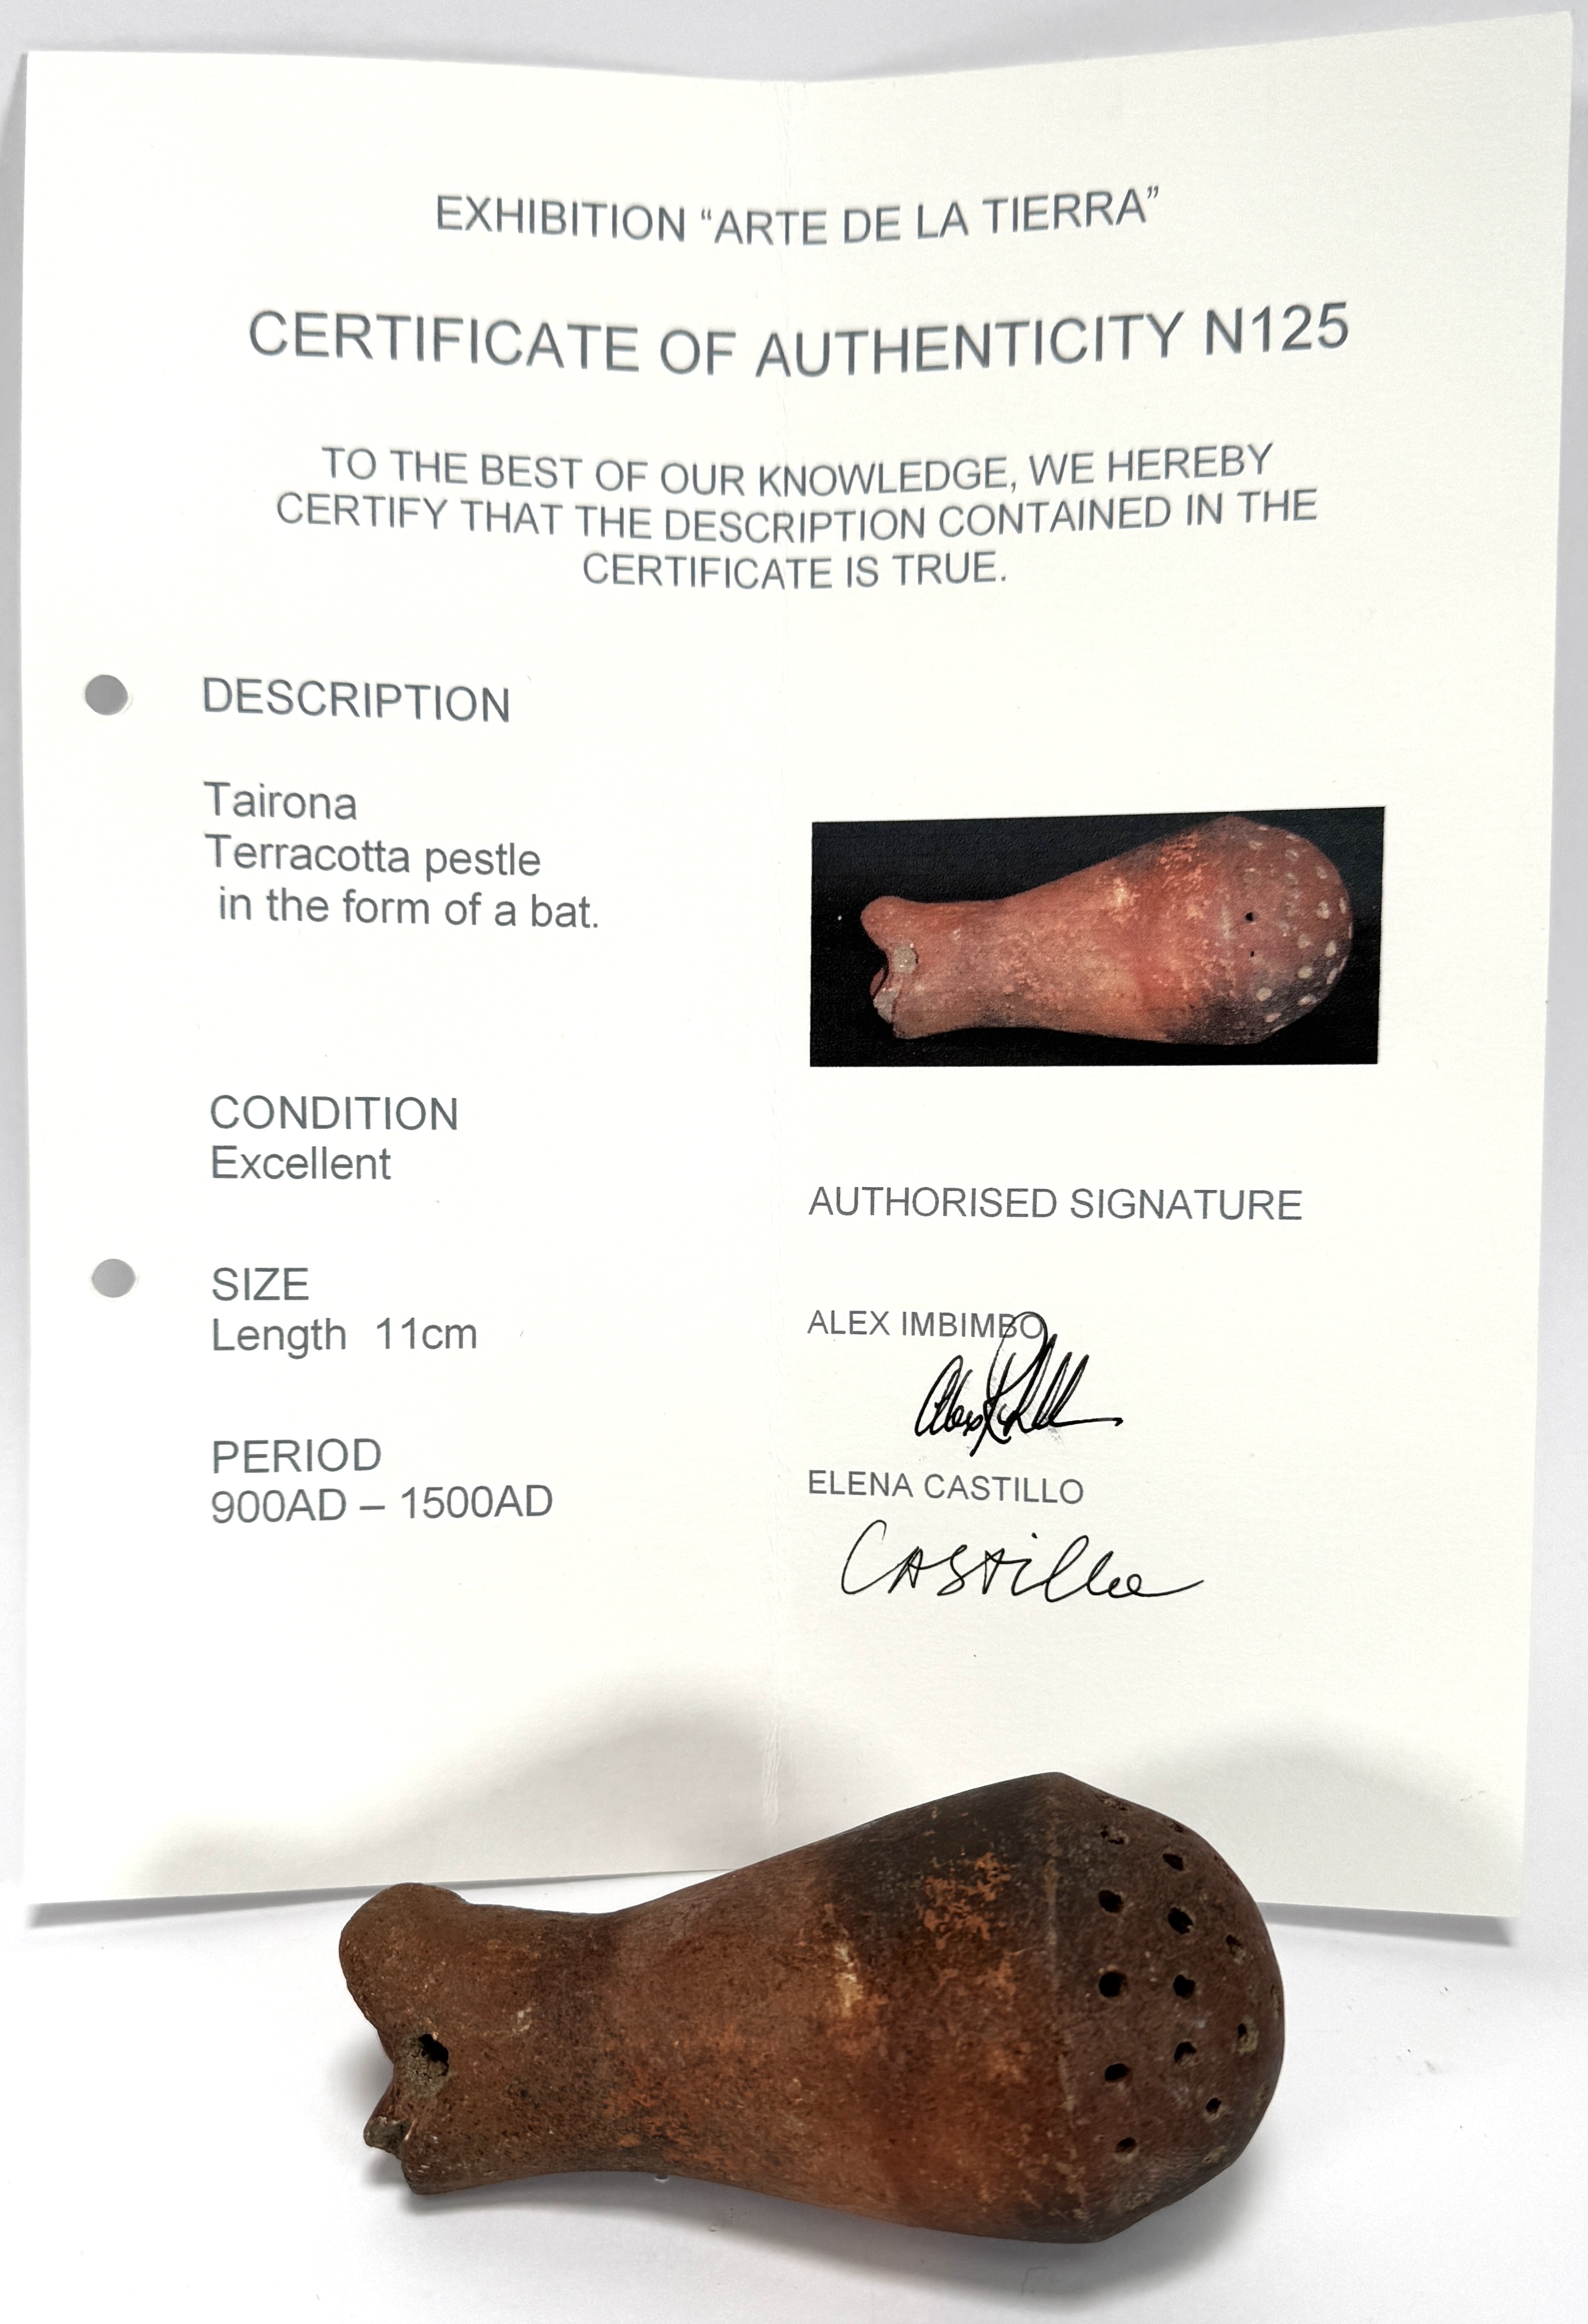 EXHIBITION “ARTE DE LA TIERRA”
CERTIFICATE OF AUTHENTICITY N125
TO THE BEST OF OUR KNOWLEDGE, WE HEREBY
CERTIFY THAT THE DESCRIPTION CONTAINED IN THE
CERTIFICATE IS TRUE.
DESCRIPTION
Tairona
Terracotta pestle
in the form of a bat.
CONDITION
Excellent
SIZE
Length 11cm
PERIOD
900AD – 1500AD
AUTHORISED SIGNATURE
ALEX IMBIMBO
ELENA CASTILLO
Castillo